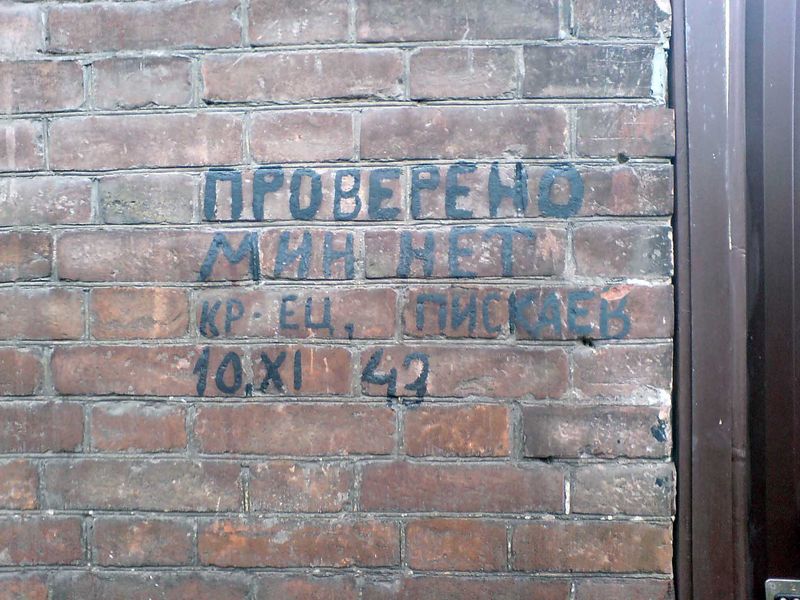 ПРОВЕРЕНО
МИН НЕТ
КР-ЕЦ, ПИСКАЕВ
10.XI 43